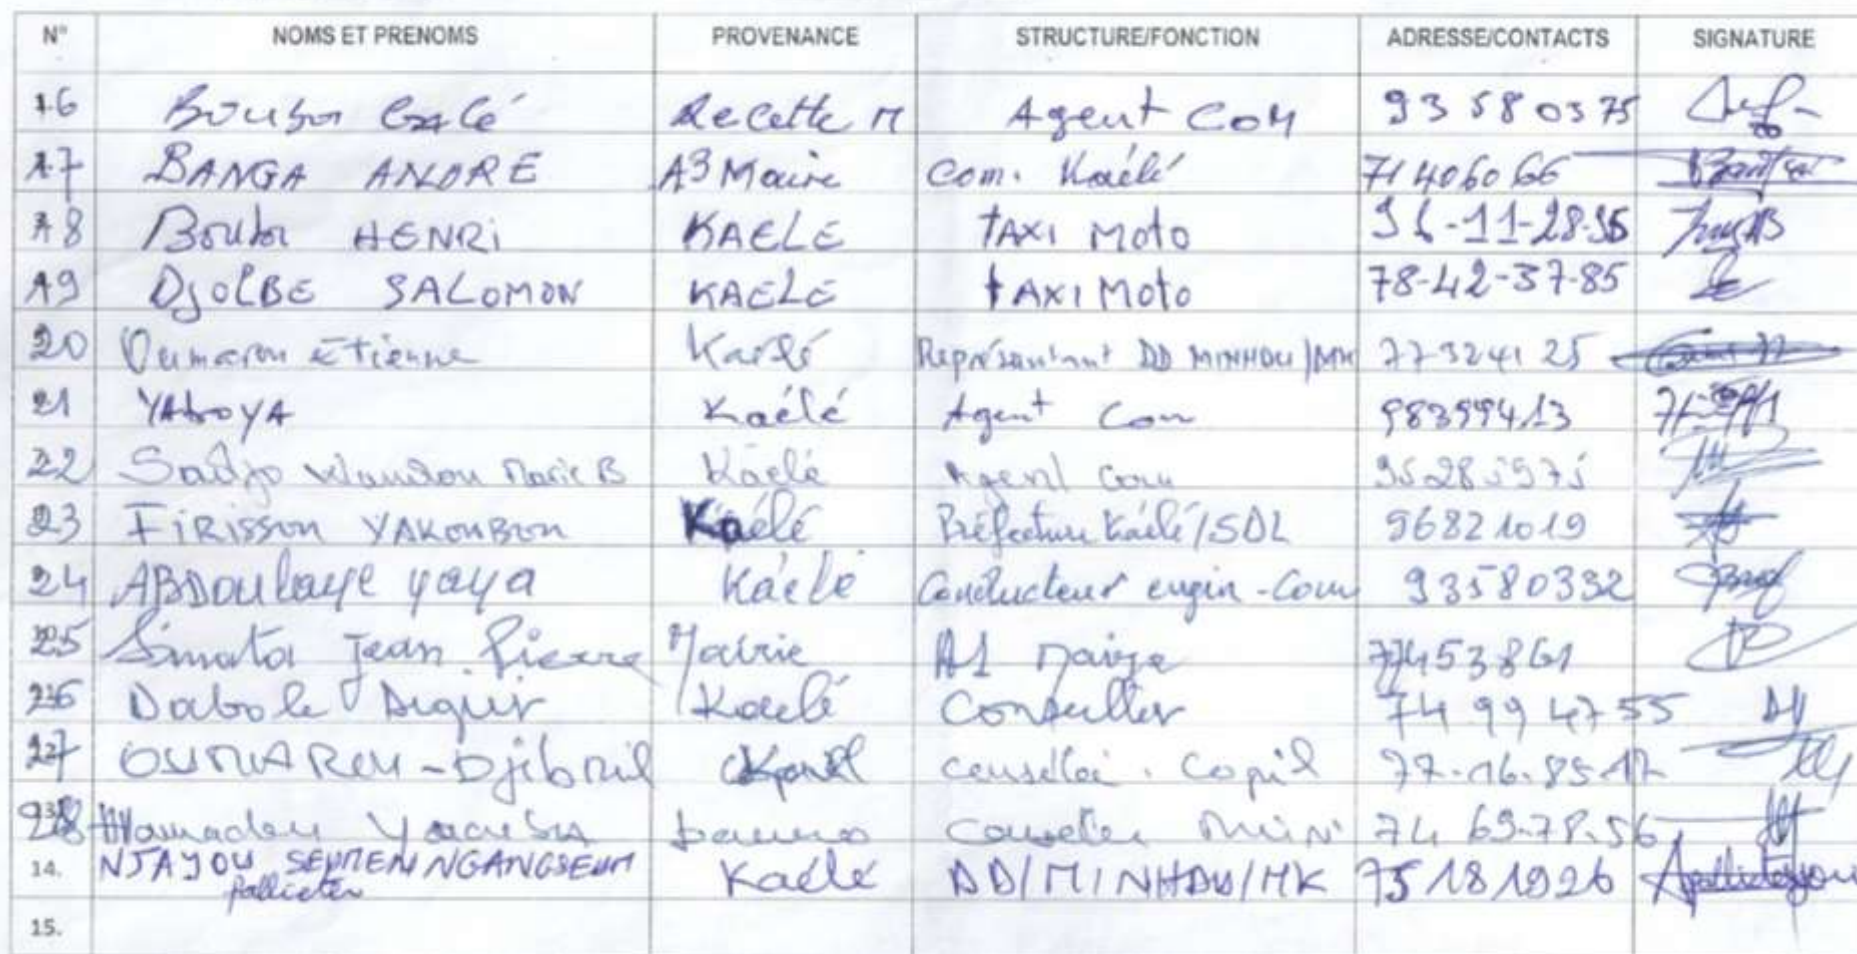 N° NOMS ET PRENOMS PROVENANCE STRUCTURE/FONCTION ADRESSE/CONTACTS SIGNATURE
16 Recette M Agent COM 93580375
17 BANGA ANDRE A3 Maire Com. Kaélé 71406066
18 HENRI KAELE TAXI Moto
19 DJOLBE SALOMON KAELE TAXI Moto 78-42-37-85
20 Oumarou Etienne Kaélé Représentant DD MINHDU/MK 77324125
21 YAboYA Kaélé Agent Com 98399413
22 Sadjo Marie B Kaélé Agent Com
23 FIRISSOU YAKOUBOU Kaélé Préfecture Kaélé/SDL 96821019
24 ABDoulaye yaya Kaélé Conducteur engin-Com 93580332
25 Jean Pierre Mairie A1 77453861
26 Kaélé Conseiller 74 99 47 55
27 OUMAROU-Djibril Copil 77-16-85-17
28 Hamadou 74 69-78-56
14. NJAJOU NGANGSEUM Kaélé DD/MINHDU/MK 75181926
15.